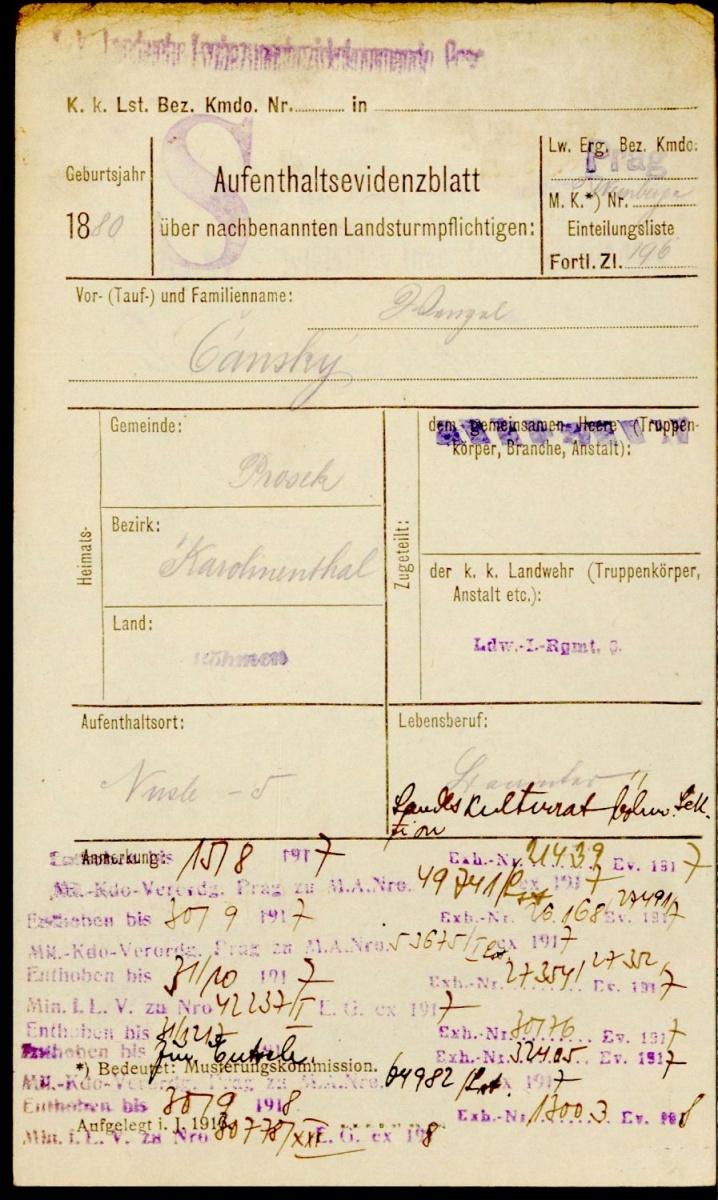 K. k. Lst. Bez. Kmdo. Nr. in
Geburtsjahr
1880
Aufenthaltsevidenzblatt
über nachbenannten Landsturmpflichtigen:
Lw. Erg. Bez. Kmdo:
Prag
M. K.*) Nr.
Einteilungsliste
Fortl. Zl. 196
Vor- (Tauf-) und Familienname:
Wenzel
Čánský
Heimats-
Gemeinde:
Prosek
Bezirk:
Karolinenthal
Land:
Böhmen
Zugeteilt:
dem gemeinsamen Heere (Truppen-
körper, Branche, Anstalt):
der k. k. Landwehr (Truppenkörper,
Anstalt etc.):
Ldw.-I.-Rgmt.
Aufenthaltsort:
Nusle - 5
Lebensberuf:
Beamter
Landeskulturrat böhm. Sek-
tion
Anmerkung:
Enthoben bis 15/8 1917 Exh.-Nr. 21439 Ev. 1917
Mil.-Kdo-Verordg. Prag zu M.A.Nro. 49741/ ex 1917
Enthoben bis 30/9 1917 Exh.-Nr. 26.168/ 27491 Ev. 1917
Mil.-Kdo-Verordg. Prag zu M.A.Nro. 53675/ ex 1917
Enthoben bis 31/10 1917 Exh.-Nr. 27354/ 27352 Ev. 1917
Min. f. L. V. zu Nro 42237/I E. G. ex 1917
Enthoben bis 31/1217 Exh.-Nr. 30776 Ev. 1917
Enthoben bis zur Entsch. Exh.-Nr. 32405 Ev. 1917
*) Bedeutet: Musterungskommission.
Mil.-Kdo-Verordg. Prag zu M.A.Nro. 64982/ ex 1917
Enthoben bis 30/9 1918 Exh.-Nr. 1300.3 Ev. 8
Aufgelegt i. J. 191
Min. f. L. V. zu Nro 80778/XXI E. G. ex 198